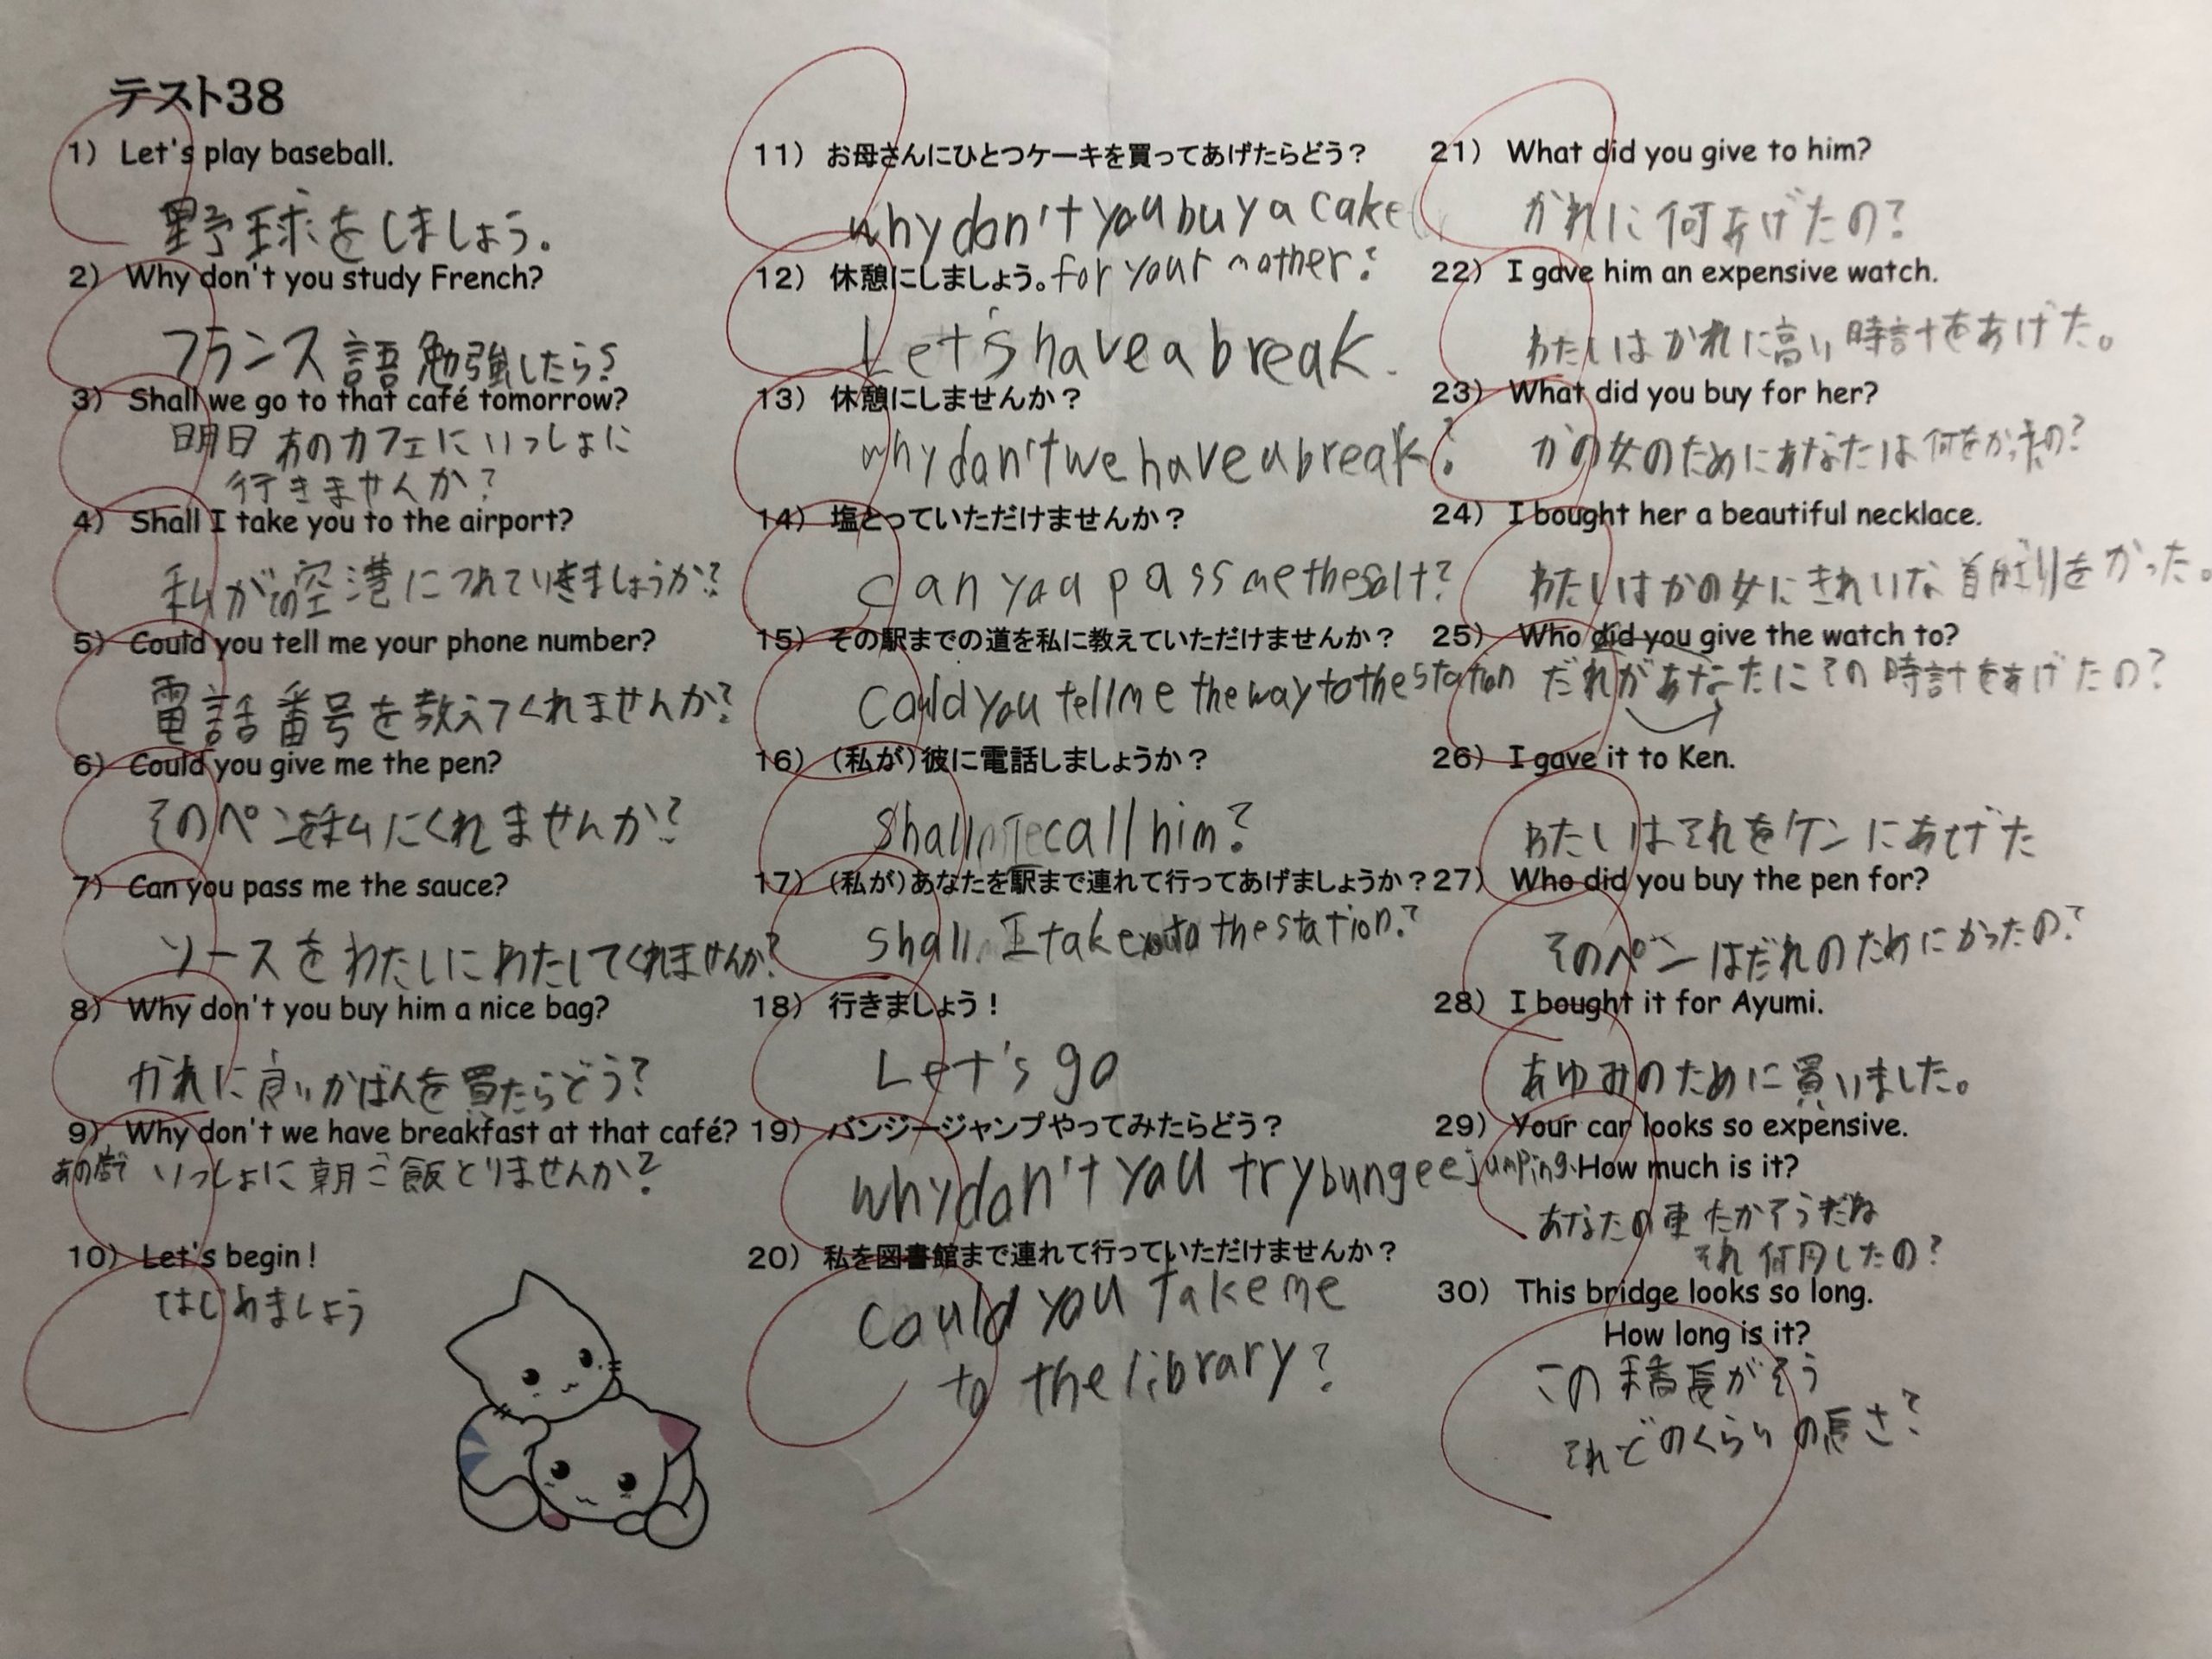 テスト38
1) Let's play baseball.
野球をしましょう。
2) Why don't you study French?
フランス語勉強したら?
3) Shall we go to that café tomorrow?
明日あのカフェにいっしょに
行きませんか?
4) Shall I take you to the airport?
私が空港につれていきましょうか?
5) Could you tell me your phone number?
電話番号を教えてくれませんか?
6) Could you give me the pen?
そのペンを私にくれませんか?
7) Can you pass me the sauce?
ソースをわたしにわたしてくれませんか?
8) Why don't you buy him a nice bag?
かれに良いかばんを買たらどう?
9) Why don't we have breakfast at that café?
いっしょに朝ご飯とりませんか?
10) Let's begin!
はじめましょう
11) お母さんにひとつケーキを買ってあげたらどう?
why don't you buy a cake
for your mother?
12) 休憩にしましょう。
Let's have a break.
13) 休憩にしませんか?
why don't we have a break?
14) 塩とっていただけませんか?
can you pass me the salt?
15) その駅までの道を私に教えていただけませんか?
could you tell me the way to the station
16) (私が)彼に電話しましょうか?
shall I call him?
17) (私が)あなたを駅まで連れて行ってあげましょうか?
shall I take you to the station?
18) 行きましょう!
Let's go
19) バンジージャンプやってみたらどう?
why don't you try bungee jumping.
20) 私を図書館まで連れて行っていただけませんか?
could you take me
to the library?
21) What did you give to him?
かれに何あげたの?
22) I gave him an expensive watch.
わたしはかれに高い時計をあげた。
23) What did you buy for her?
かの女のためにあなたは何をかったの?
24) I bought her a beautiful necklace.
わたしはかの女にきれいな首飾りをかった。
25) Who did you give the watch to?
だれがあなたにその時計をあげたの?
26) I gave it to Ken.
わたしはそれをケンにあげた
27) Who did you buy the pen for?
そのペンはだれのためにかったの?
28) I bought it for Ayumi.
あゆみのために買いました。
29) Your car looks so expensive.
How much is it?
あなたの車たかそうだね
それ何円したの?
30) This bridge looks so long.
How long is it?
この橋長がそう
それどのくらいの長さ?